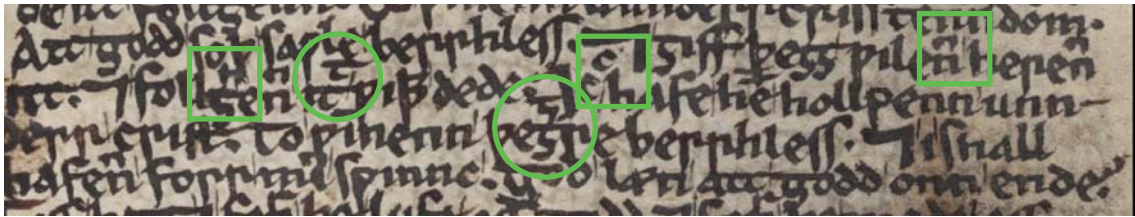 unnderr crisstenndom.
Att godd soþ sawle berrhless. ⁊ ȝiff þeȝȝ wilenn herenn
itt. ⁊ follȝhenn itt wiþþ dede. icc hafe hemm hollpenn unn-
derr crist. To winnenn þeȝȝre berrhless. ⁊ i shall
hafenn forr min swinnc. god læn att godd onn ende.